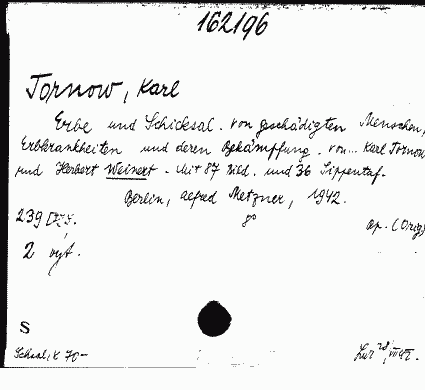 162196
Tornow, Karl
Erbe und Schicksal. Von geschädigten Menschen,
Erbkrankheiten und deren Bekämpfung. von... Karl Tornow
und Herbert Weinert. Mit 87 Bild. und 36 Sippentaf.
Berlin, Alfred Metzner, 1942.
239 S. 8° Op. (Orig)
2 vyt.
S
70-